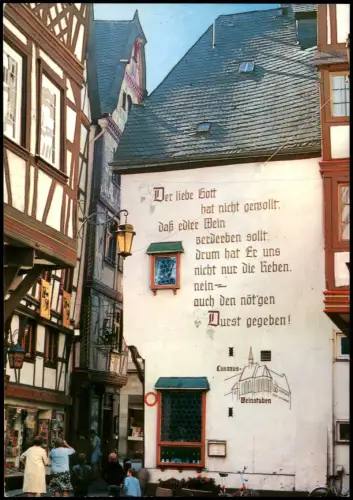 Der liebe Gott
hat nicht gewollt,
daß edler Wein
verderben soll,
drum hat Er uns
nicht nur die Reben,
nein –
auch den nöt'gen
Durst gegeben!
Cusanus
Weinstuben